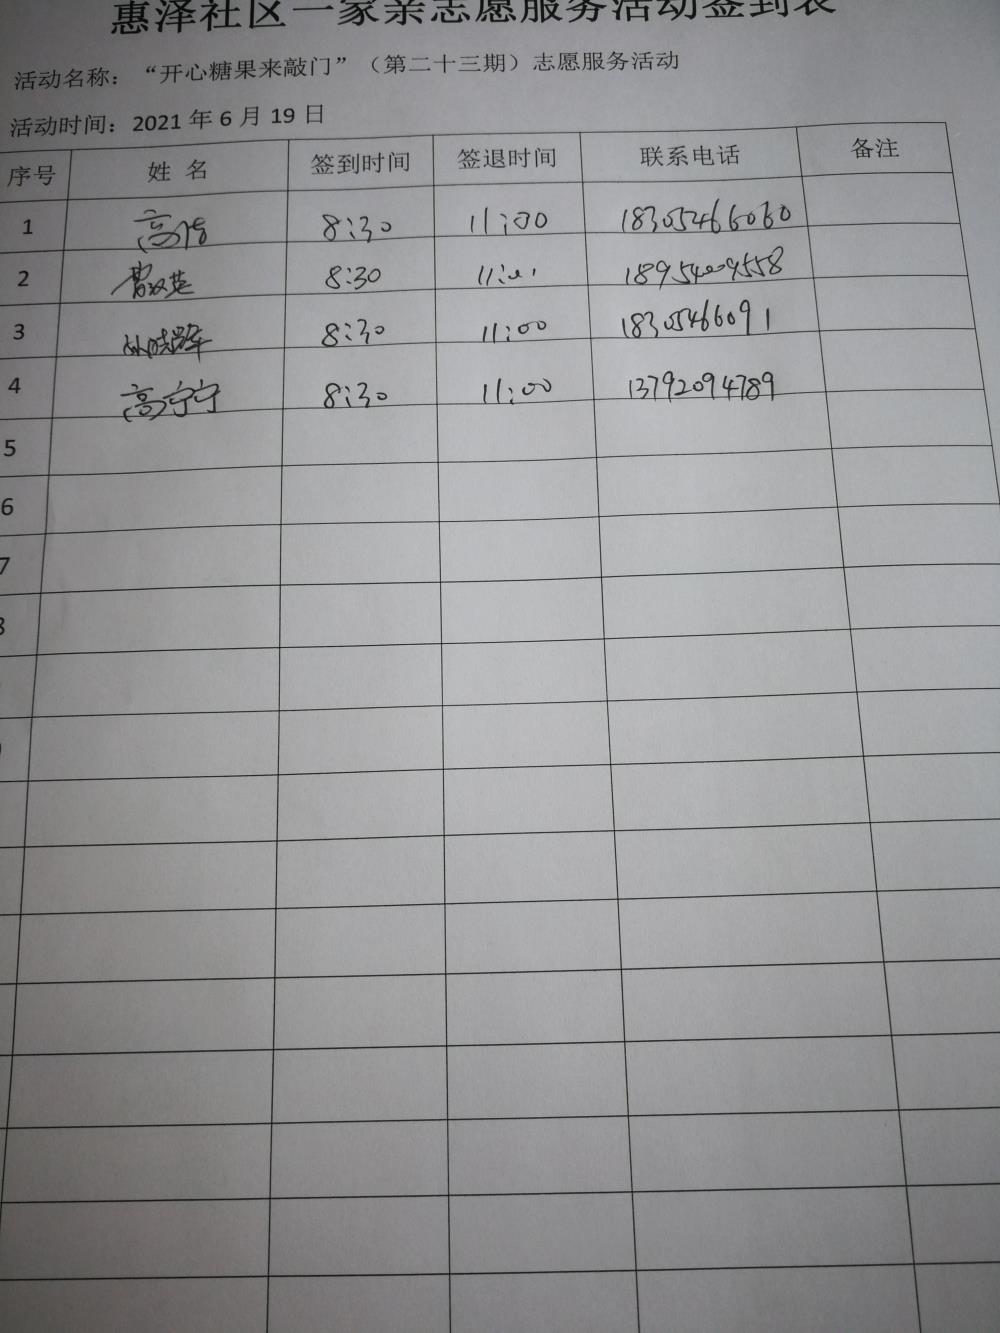 惠泽社区一家亲志愿服务活动签到表
活动名称：“开心糖果来敲门”（第二十三期）志愿服务活动
活动时间：2021 年 6 月 19 日
序号 姓 名 签到时间 签退时间 联系电话 备注
1 高倩 8:30 11:00 18305466060
2 8:30 11:00
3 8:30 11:00 18305466091
4 高宁宁 8:30 11:00 13792094789
5
6
7
8